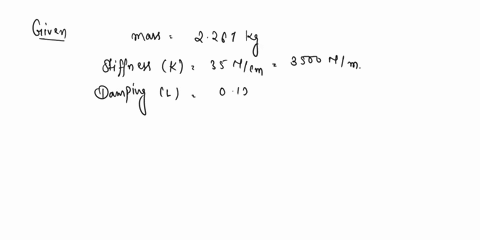 Given
mass = 2.267 kg
Stiffness (K) = 35 N/cm = 3500 N/m.
Damping (L) = 0.12